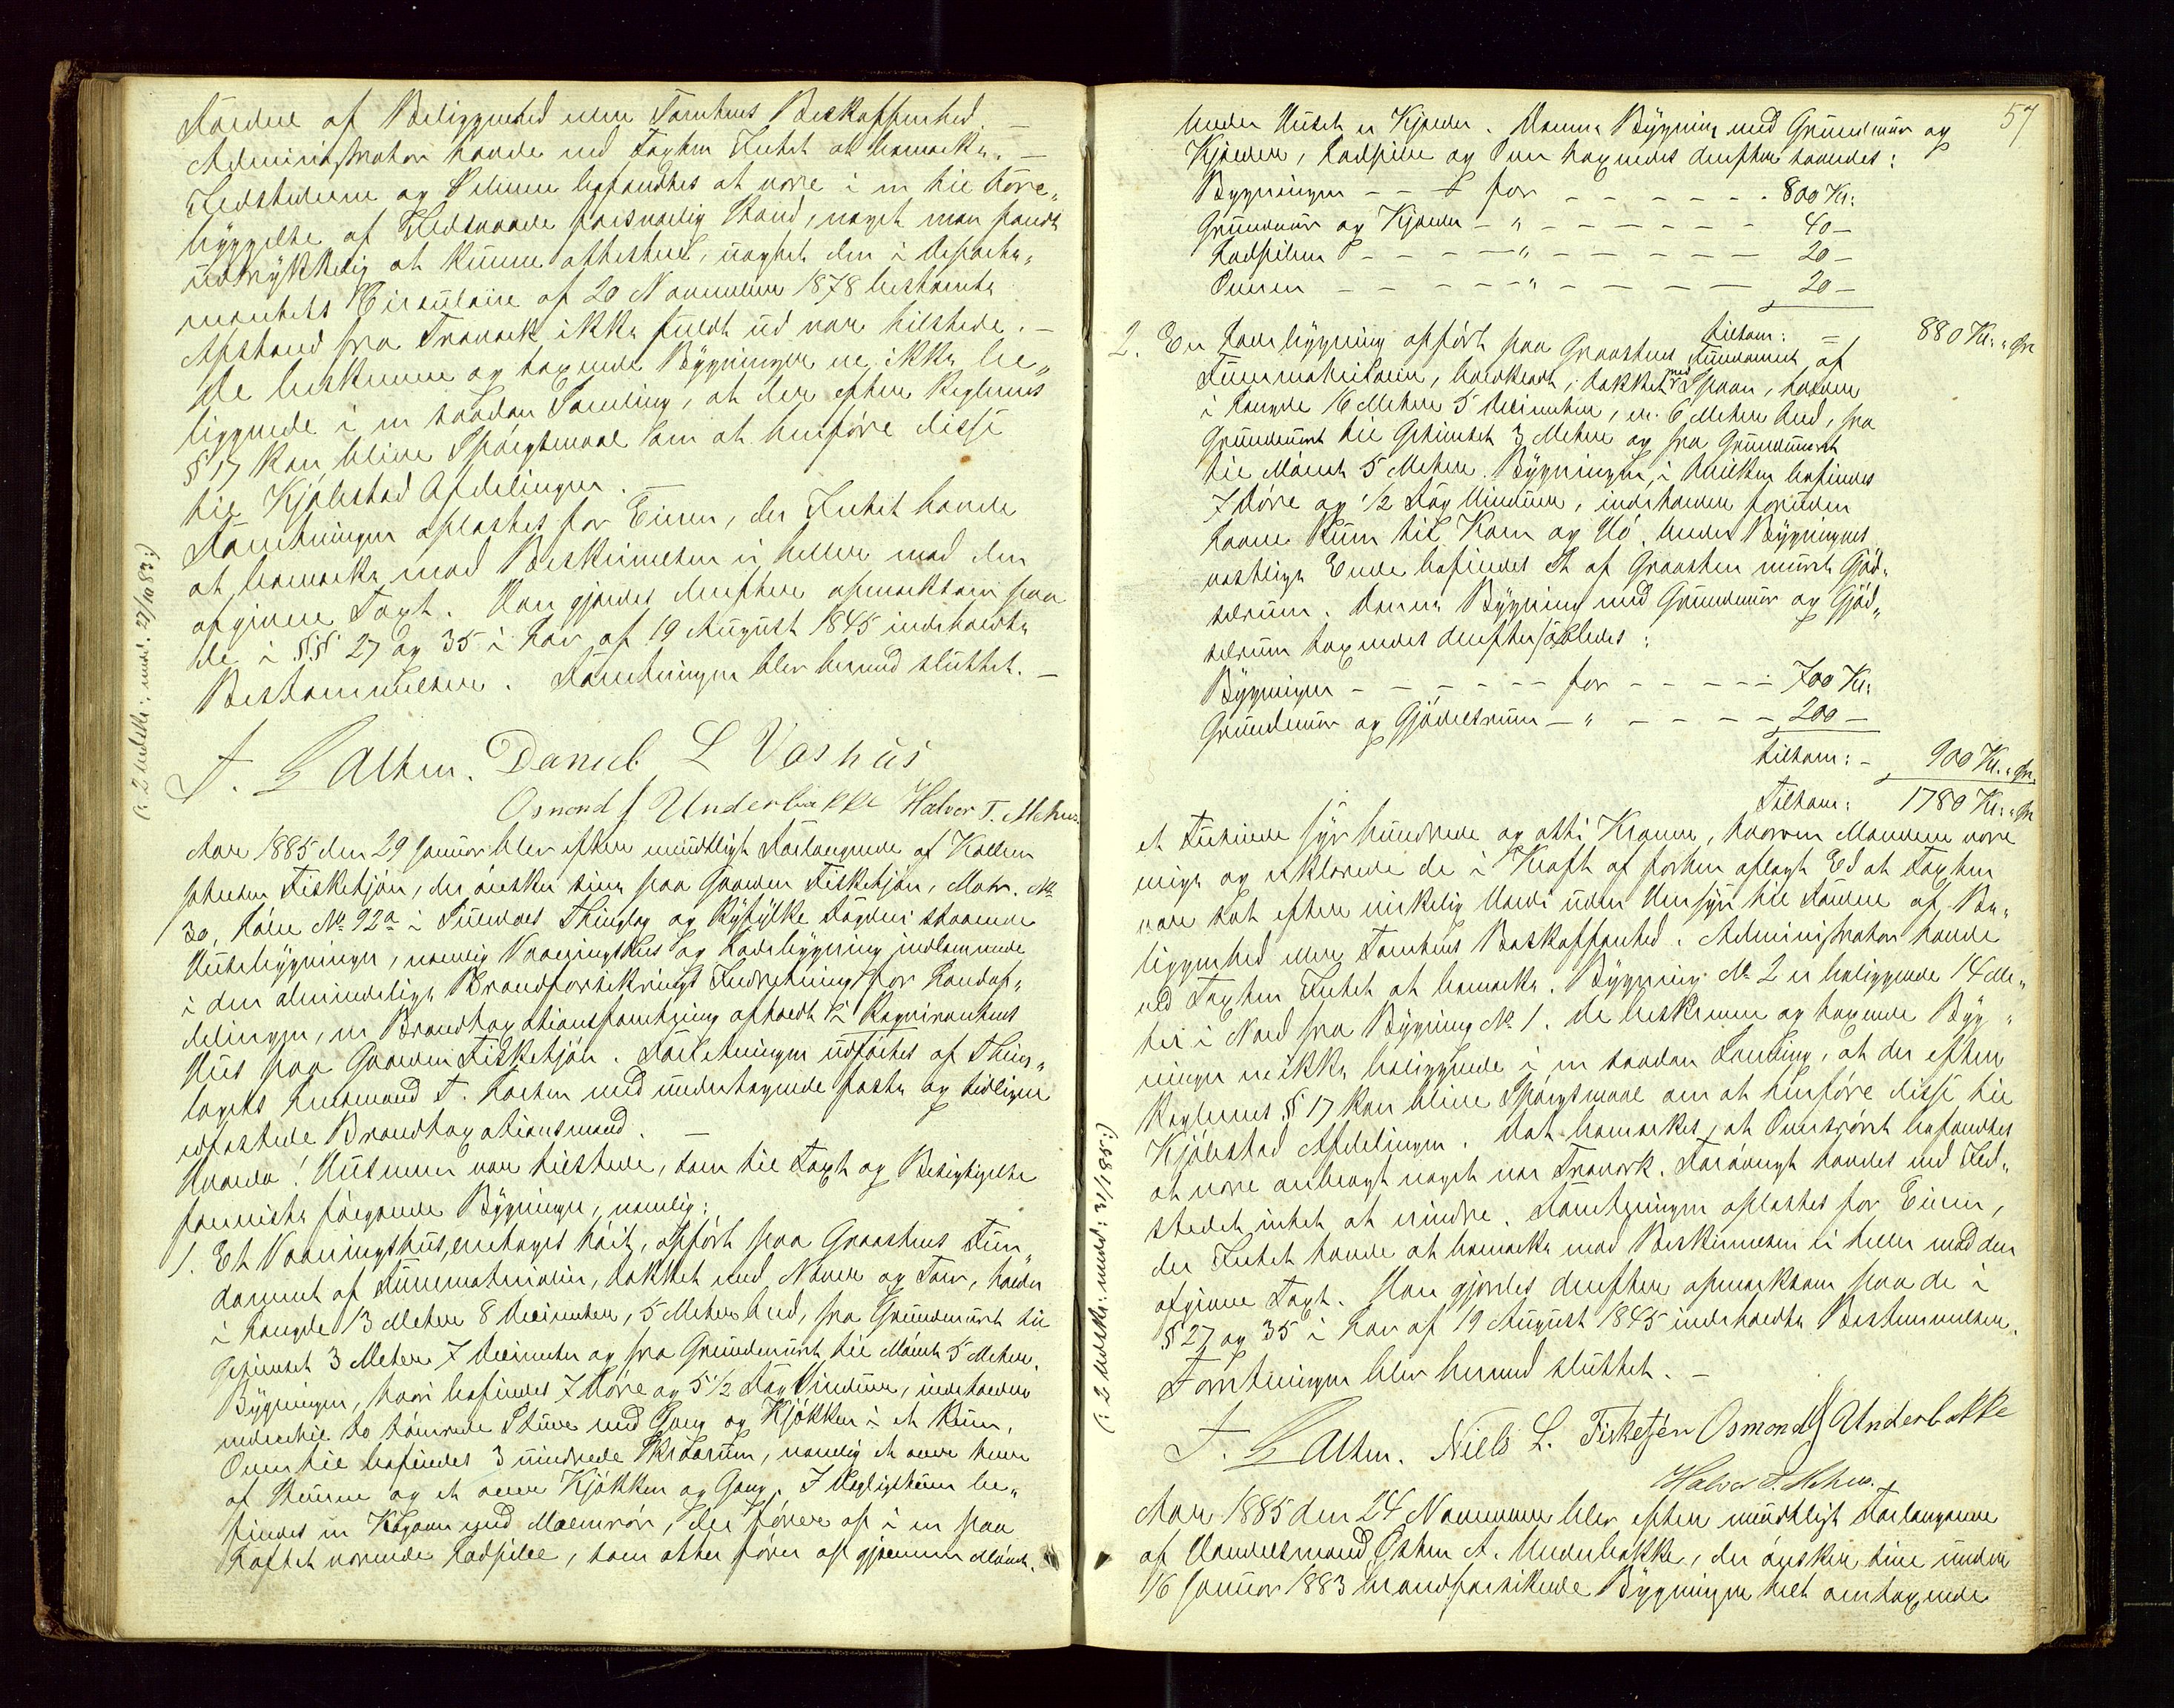 Fordele af Beliggenhed eller Tomtens Beskaffenhed. —
Administrator havde ved Taxten Intet at bemærke. —
Ildstederne og Piberne befandtes at være i en til Fore-
byggelse af Ildsvaade forsvarlig Stand, noget man fandt
udtrykkelig at kunne attestere, uagtet den i Departe-
mentets Circulaire af 20 November 1878 bestemte
Afstand fra Træværk ikke fuldt ud var tilstede. —
De beskrevne og taxerede Bygninger er ikke be-
liggende i en saadan Samling, at der efter Reglernes
§ 17 kan blive Spørgsmaal om at henføre disse
til Kjøbstad Afdelingen. —
Forretningen oplæstes for Eieren, der Intet havde
at bemærke mod Beskrivelsen ei heller mod den
afgivne Taxt. Han gjordes derefter opmærksom paa
de i §§ 27 og 35 i Lov af 19 August 1845 indeholdte
Bestemmelser. Forretningen blev hermed sluttet. —
(: 2 Udskr: med. 27/10 83 :)
T. Lalhm. Daniel L Vashus
Osmond J Underbakke Halvor T. Mehus.
Aar 1885 den 29 Januar blev efter mundtligt Forlangende af
Fisketjøn, der ønsker sine paa Gaarden Fisketjøn, Matr. No
30, Løbe No 92a i Suledals Thinglag og Ryfylke Fogderi staaende
Husebygninger, nemlig Vaaningshus og Ladebygning indlemmede
i den almindelige Brandforsikrings Indretning for Landaf-
delingen, en Brandtaxationsforretning afholdt i Reqvirentens
Hus paa Gaarden Fisketjøn. Forretningen udførtes af Thing-
lagets Lensmand T. med undertegnede faste og tidligere
edfæstede Brandtaxationsmænd. —
Hvorda! Husmoren var tilstede, som til Taxt og Besigtigelse
foreviste følgende Bygninger, nemlig:
1. Et Vaaningshus, enetages høit, opført paa Graastens Fun-
dament af Furematerialier, tækket med Næver og Torv, holder
i Længde 13 Meter 8 Decimeter, 5 Meter bred, fra Grundmuren til
Gesimset 3 Meter 7 Decimeter og fra Grundmuren til Mønet 5 Meter.
Bygningen, hvori befindes 7 Døre og 5 1/2 Fag Vinduer, indeholder
nedentil to tømrede Stuer med Gang og Kjøkken i et Rum,
Oventil befindes 3 indredede Rum, nemlig et over hver
af Stuerne og et over Kjøkken og Gang. I Dagligstuen be-
findes en Kogeovn med Malmrør, der fører op i en paa
Loftet værende Ladpibe, som atter fører op gjennem Mønet.
57
Under Huset er Kjælder. Denne Bygning med Grundmur og
Kjælder, Ladpibe og Ovn taxeredes derefter saaledes:
Bygningen — — — for — — — — — — 800 Kr:
Grundmur og Kjælder — " — — — — — — 40 —
Ladpiben — — — — — " — — — — — — 20 —
Ovnen — — — — — " — — — — — — 20 —
tilsam: — 880 Kr. " Øre
2. En Ladebygning opført paa Graastens Fundament af
Furematerialier, bordklædt, tækket med Spaan, holder
i Længde 16 Meter 5 Decimeter, er 6 Meter bred, fra
Grundmuren til Gesimset 3 Meter og fra Grundmuren
til Mønet 5 Meter. Bygningen, i hvilken befindes
7 Døre og 1/2 Fag Vinduer, indeholder foruden
Laave Rum til Korn og Hø. Under Bygningens
vestlige Ende befindes et af Graasten muret Gjød-
selrum. Denne Bygning med Grundmur og Gjød-
selrum taxeredes derefter saaledes:
Bygningen — — — — — — for — — — — — 700 Kr:
Grundmur og Gjødselrum — " — — — — — 200 —
tilsam: — 900 Kr. " Øre
Tilsam: 1780 Kr: " Øre
et Tusinde syv hundrede og otti Kroner, hvorom Mændene vare
enige og erklærede de i Kraft af forhen aflagt Ed at Taxten
var sat efter virkelig Værdi uden Hensyn til Fordele af Be-
liggenhed eller Tomtens Beskaffenhed. Administrator havde
ved Taxten Intet at bemærke. Bygning No 2 er beliggende 14 Me-
ter i Nord fra Bygning No 1. De beskrevne og taxerede Byg-
ninger er ikke beliggende i en saadan Samling, at der efter
Reglernes § 17 kan blive Spørgsmaal om at henføre disse til
Kjøbstad Afdelingen. Det bemærkes, at Ovnsrøret befandtes
at være anbragt noget nær Træværk. Forøvrigt havdes ved Ild-
stedet intet at erindre. Forretningen oplæstes for Eieren,
der Intet havde at bemærke mod Beskrivelsen ei heller mod den
afgivne Taxt. Han gjordes derefter opmærksom paa de i
§ 27 og 35 i Lov af 19 August 1845 indeholdte Bestemmelser.
Forretningen blev hermed sluttet. —
(: 2 Udskr. med: 31/1 85 :)
T. Lalhm. Niels L. Fisketjøn Osmond J Underbakke
Halvor T. Mehus.
Aar 1885 den 24 November blev efter mundtligt Forlangende
af Handelsmand Østen A. Underbakke, der ønsker sine under
16 Januar 1883 brandforsikrede Bygninger helt omtaxerede